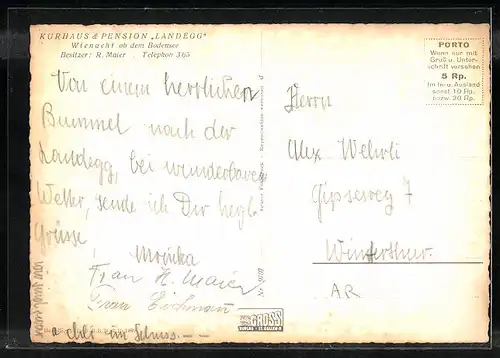 KURHAUS & PENSION „LANDEGG“
Wienacht ob dem Bodensee
Besitzer: R. Maier . Telephon 365
PORTO
Wenn nur mit
Gruß u. Unter-
schrift versehen
5 Rp.
Im In- u. Ausland
sonst 10 Rp.
bzw. 20 Rp.
Von einem herrlichen
Bummel nach der
Landegg, bei wunderbarem
Wetter, sende ich Dir herzl.
Grüsse
Monika
Frau H. Maier
Frau
Herrn
Alex Wehrli
Gipserweg 7
Winterthur.
AR
GROSS
ST. GALLEN